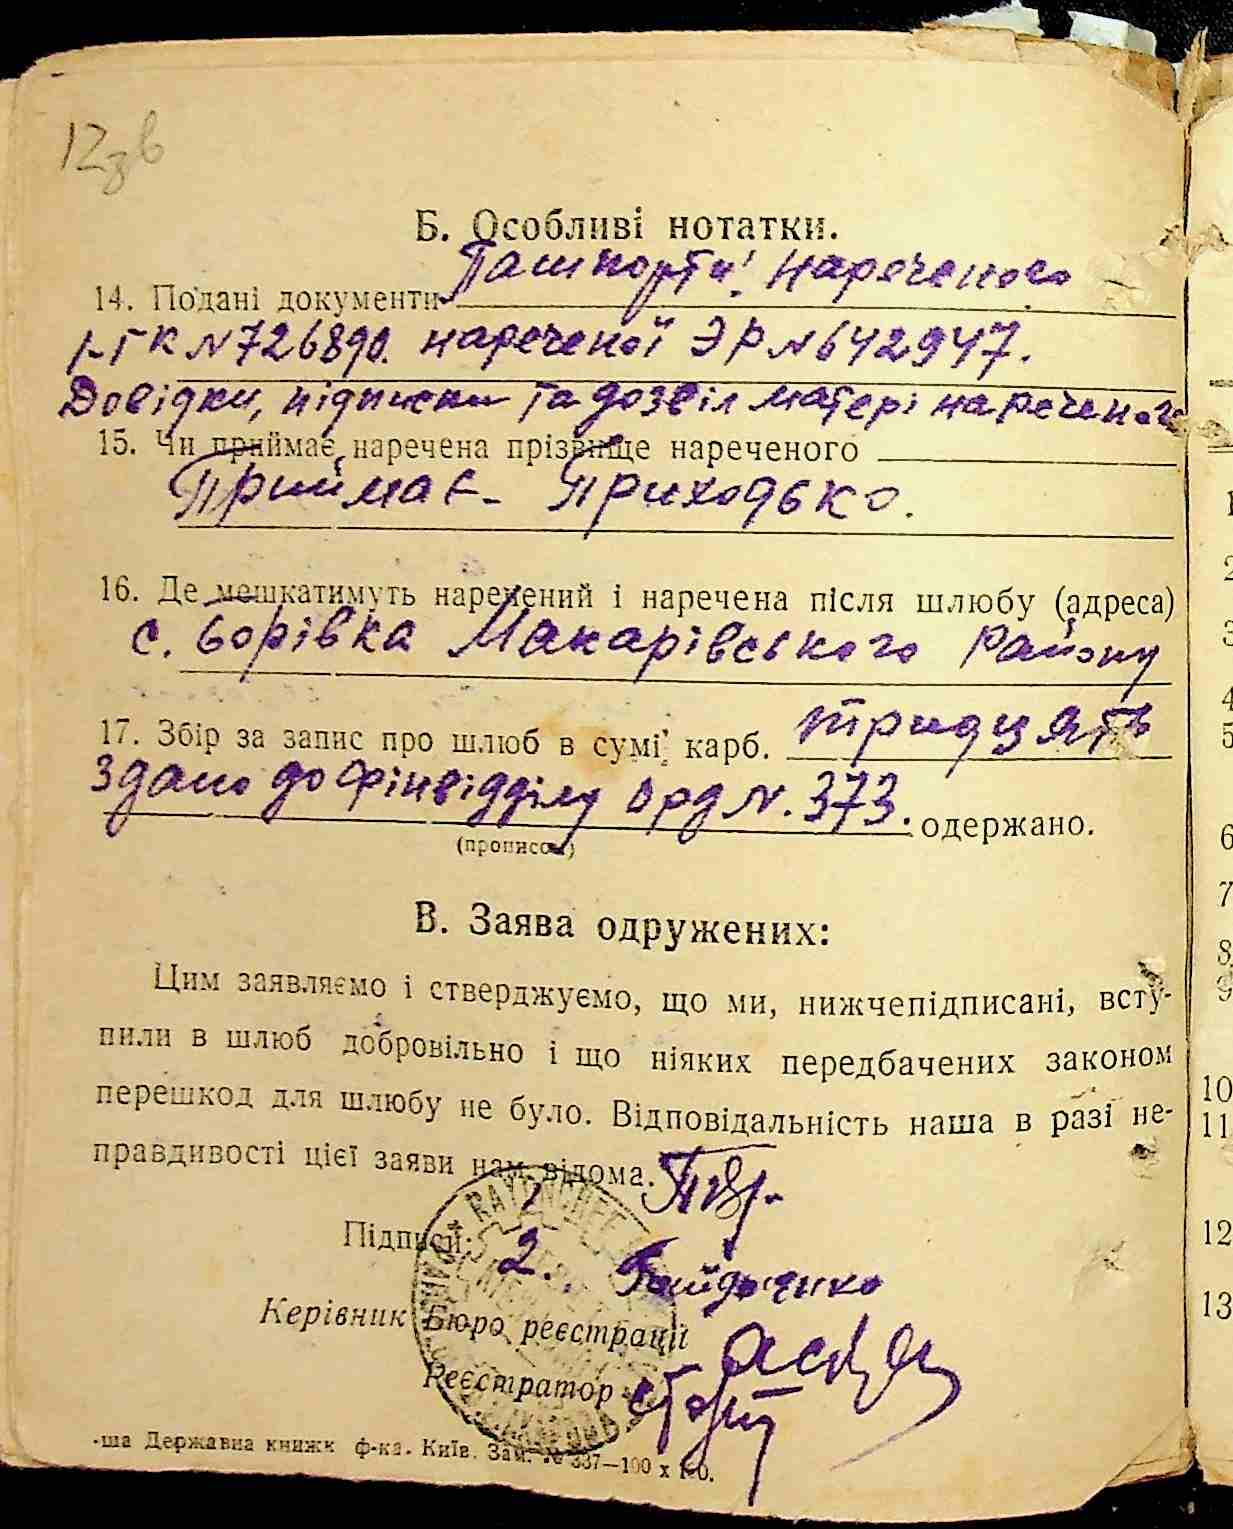 12зв
Б. Особливі нотатки.
14. Подані документи Пашпорти: нареченого
I-ГК №726890. нареченої ЭР №642947.
Довідки, підписки та дозвіл матері нареченого
15. Чи приймає наречена прізвище нареченого
Приймає - Приходько.
16. Де мешкатимуть наречений і наречена після шлюбу (адреса)
с. Борівка Макарівського Району
17. Збір за запис про шлюб в сумі карб. тридцять
Здано до фінвідділу Орд №. 373. одержано.
(прописом)
В. Заява одружених:
Цим заявляємо і стверджуємо, що ми, нижчепідписані, всту-
пили в шлюб добровільно і що ніяких передбачених законом
перешкод для шлюбу не було. Відповідальність наша в разі не-
правдивості цієї заяви нам відома.
Підписи: 1
2. Гайдаченко
Керівник Бюро реєстрації
Реєстратор
-ша Державна книжк ф-ка. Київ. Зам. № 337—100 х 100.
1
2
3
4
5
6
7
8
9
10
11
12
13